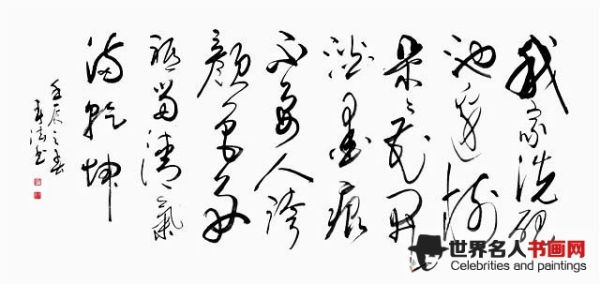 我家洗砚
池邊樹
朵々花開
淡墨痕
不要人誇
顏色好
祇留清氣
滿乾坤
壬辰之春
书
世界名人书画网
Celebrities and paintings